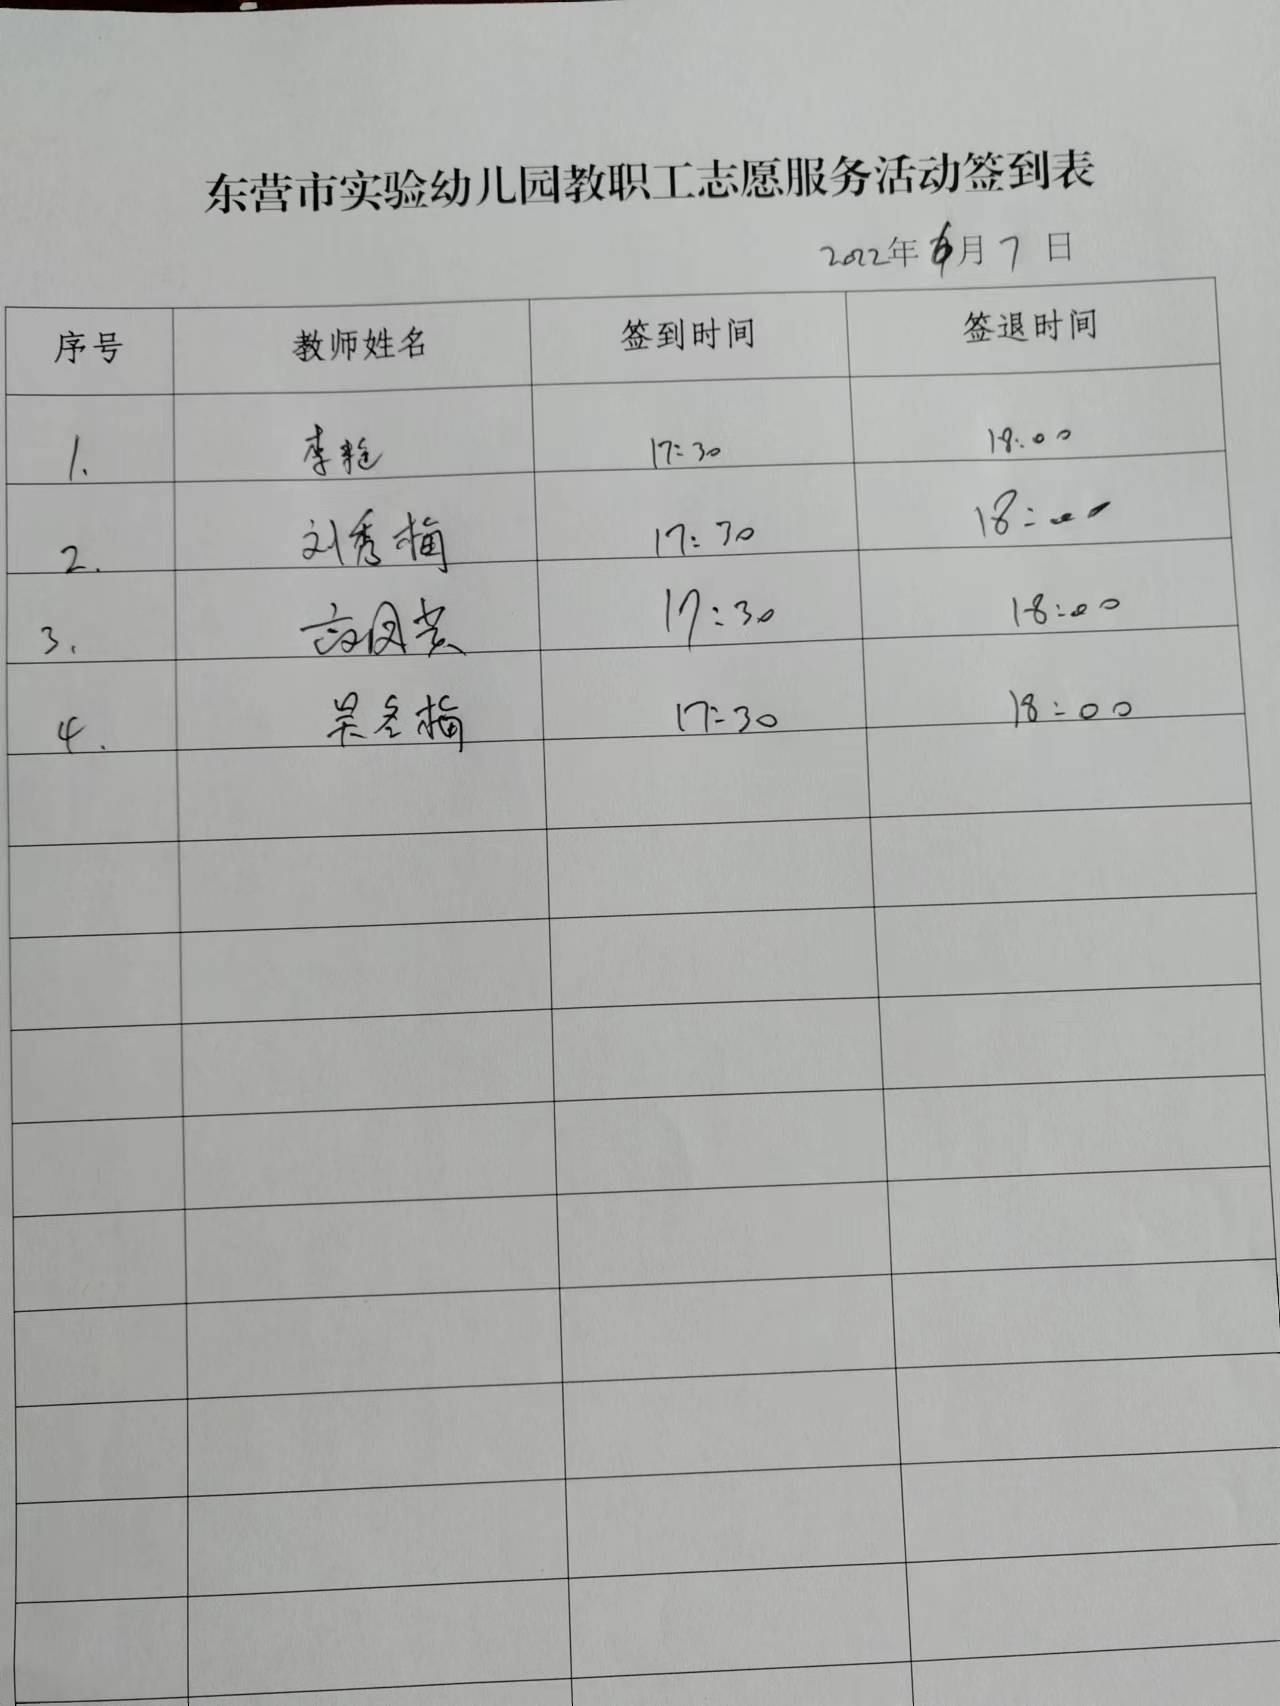 东营市实验幼儿园教职工志愿服务活动签到表
2022年6月7日
序号 教师姓名 签到时间 签退时间
1. 李艳 17:30 18:00
2. 刘秀梅 17:30 18:00
3. 17:30 18:00
4. 吴冬梅 17:30 18:00